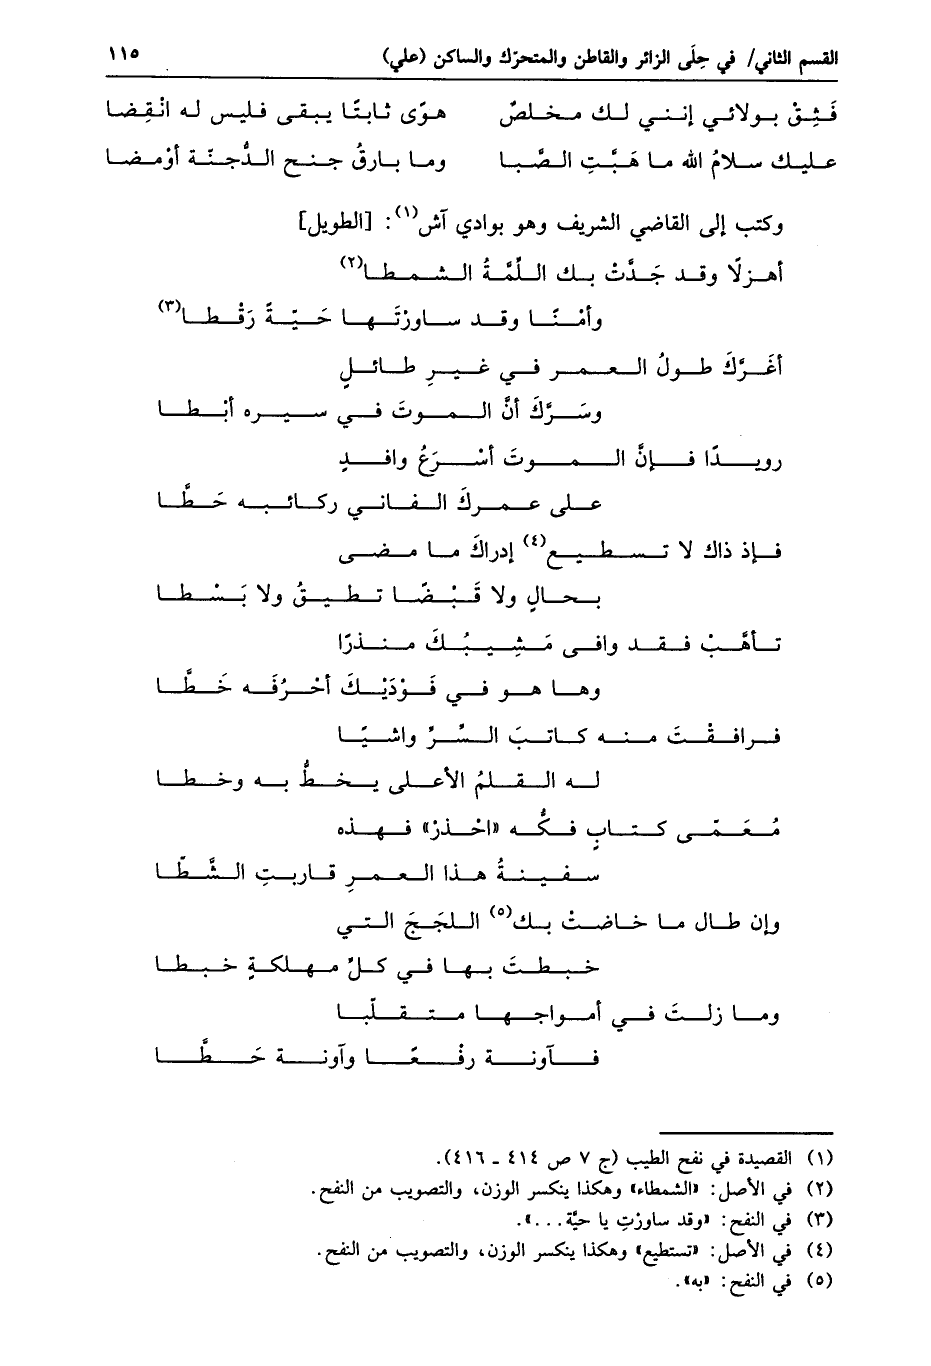 القسم الثاني/ في حِلَى الزائر والقاطن والمتحرّك والساكن (علي) ١١٥
فَثِقْ بولائي إنني لك مخلصٌ هوًى ثابتًا يبقى فليس له انْقِضا
عليك سلامُ الله ما هَبَّتِ الصَّبا وما بارقُ جنح الدُّجنّة أوْمضا
وكتب إلى القاضي الشريف وهو بوادي آش(١): [الطويل]
أهزلًا وقد جَدَّتْ بك اللِّمَّةُ الشمطا(٢)
وأمْنًا وقد ساورْتَها حَيّةً رَقْطا(٣)
أغَرَّكَ طولُ العمر في غيرِ طائلٍ
وسَرَّكَ أنَّ الموتَ في سيره أبْطا
رويدًا فإنَّ الموتَ أسْرَعُ وافدٍ
على عمركَ الفاني ركائبه حَطَّا
فإذ ذاك لا تسطيع(٤) إدراكَ ما مضى
بحالٍ ولا قَبْضًا تطيقُ ولا بَسْطا
تأهَّبْ فقد وافى مَشِيبُكَ منذرًا
وها هو في فَوْدَيْكَ أحْرُفَه خَطَّا
فرافقْتَ منه كاتبَ السِّرِّ واشيًا
له القلمُ الأعلى يخطُّ به وخطا
مُعَمّى كتابٍ فكُّه «احْذرْ» فهذه
سفينةُ هذا العمرِ قاربتِ الشَّطّا
وإن طال ما خاضتْ بك(٥) اللجَجَ التي
خبطتَ بها في كلّ مهلكةٍ خبطا
وما زلتَ في أمواجها متقلّبا
فآونة رفْعًا وآونة حَطَّا
(١) القصيدة في نفح الطيب (ج ٧ ص ٤١٤ ـ ٤١٦).
(٢) في الأصل: «الشمطاء» وهكذا ينكسر الوزن، والتصويب من النفح.
(٣) في النفح: «وقد ساورْتِ يا حيّة...».
(٤) في الأصل: «تستطيع» وهكذا ينكسر الوزن، والتصويب من النفح.
(٥) في النفح: «به».